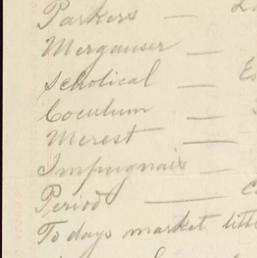 Parkers —
Merganser —
Scholical — Es
Coculum —
Merest —
Impugnair —
Period —
To days market litt